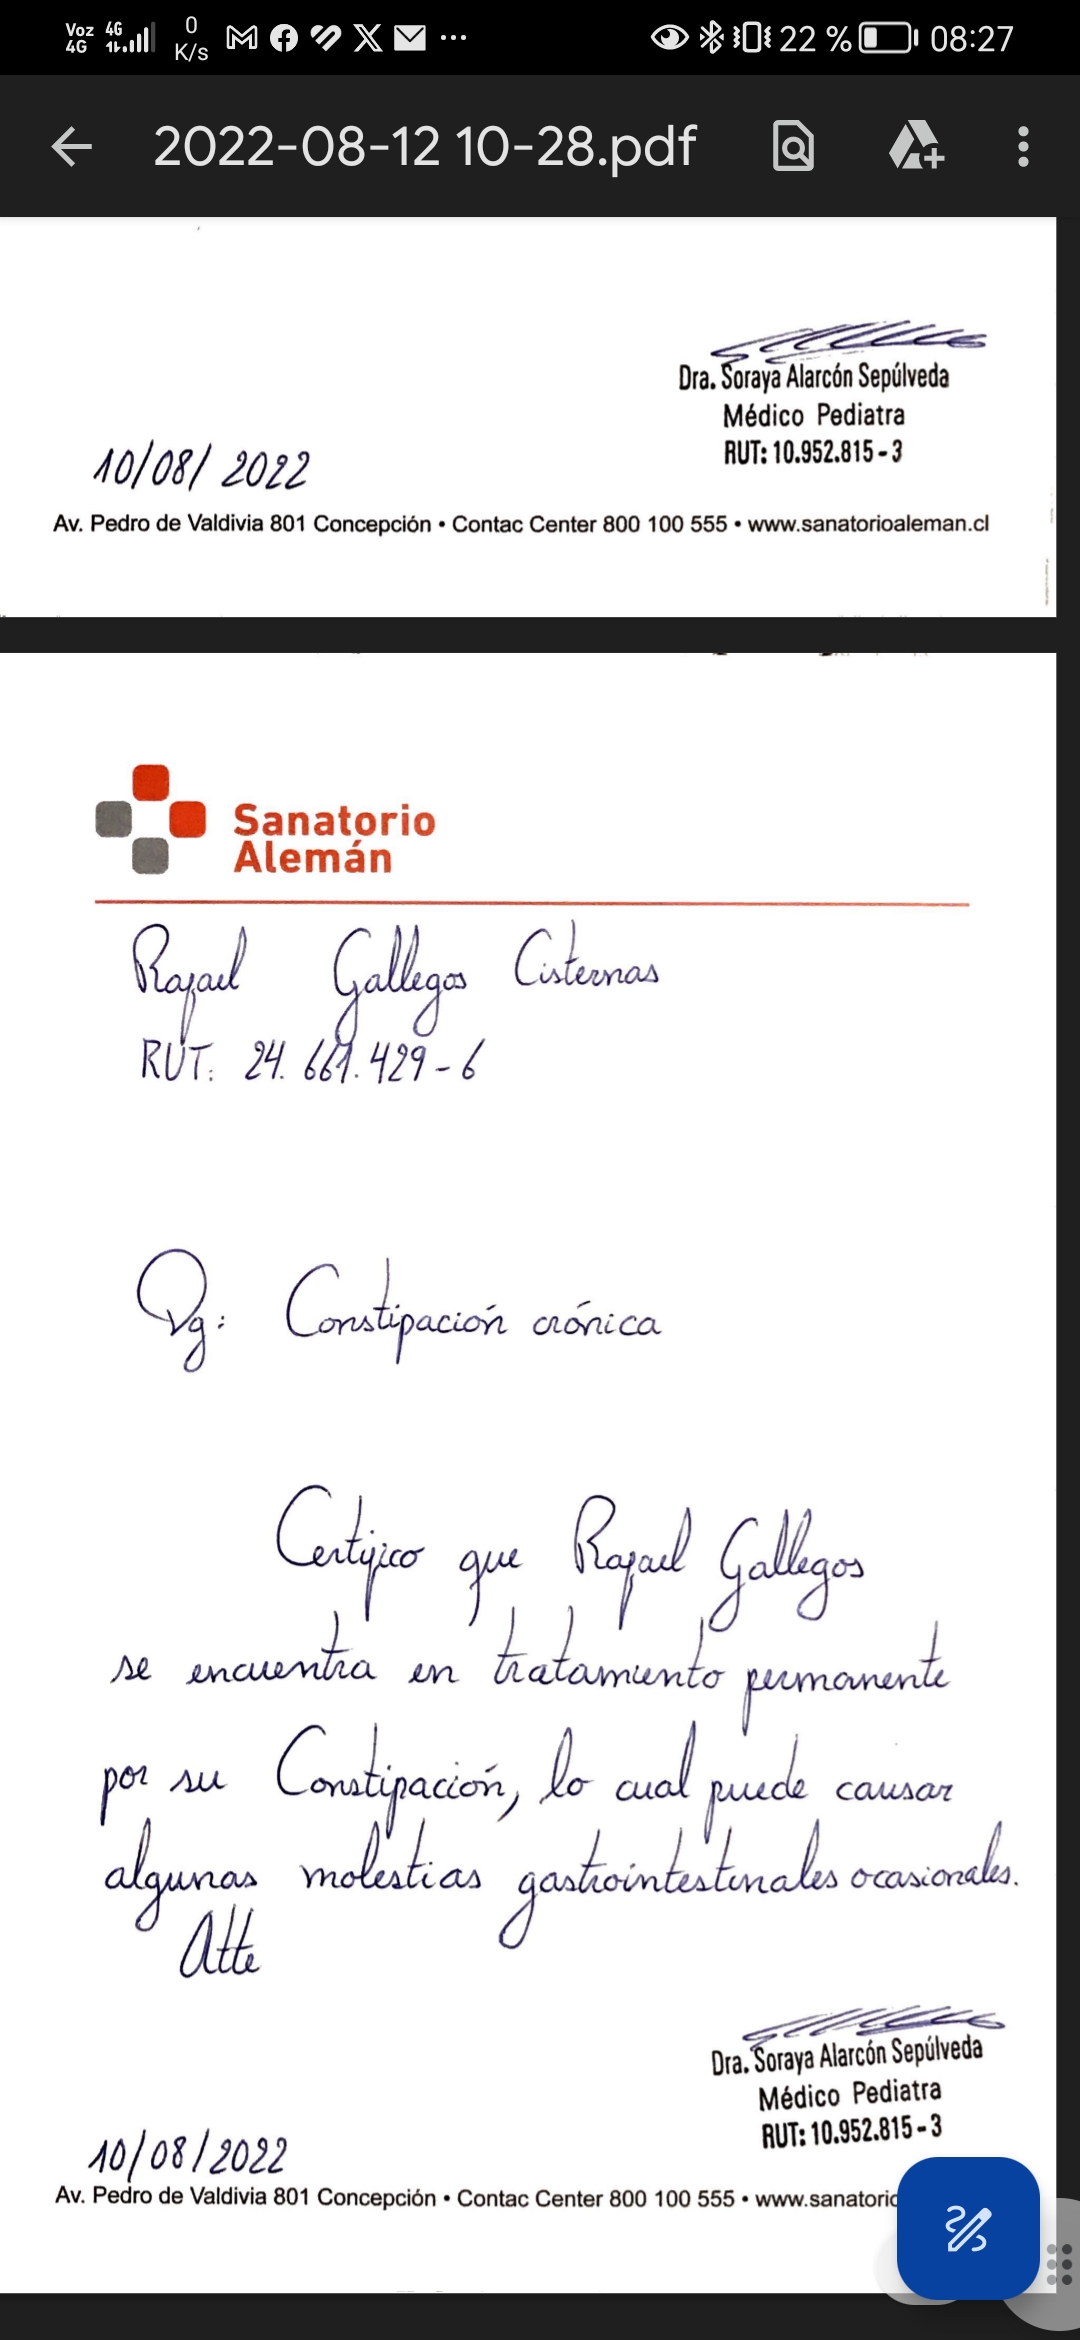 Voz 4G
4G
0 K/s
22 %
08:27
2022-08-12 10-28.pdf
Dra. Soraya Alarcón Sepúlveda
Médico Pediatra
RUT: 10.952.815-3
10/08/2022
Av. Pedro de Valdivia 801 Concepción • Contac Center 800 100 555 • www.sanatorioaleman.cl
Sanatorio
Alemán
Rafael Gallegos Cisternas
RUT: 24.661.429-6
Dg: Constipación crónica
Certifico que Rafael Gallegos
se encuentra en tratamiento permanente
por su Constipación, lo cual puede causar
algunas molestias gastrointestinales ocasionales.
Atte
Dra. Soraya Alarcón Sepúlveda
Médico Pediatra
RUT: 10.952.815-3
10/08/2022
Av. Pedro de Valdivia 801 Concepción • Contac Center 800 100 555 • www.sanatorio